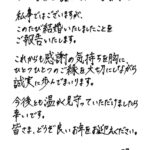 私事ではございますが、
このたび結婚いたしましたことを
ご報告いたします。
これからも感謝の気持ちを胸に、
ひとつひとつのご縁を大切にしながら
誠実に歩んでまいります。
今後とも温かく見守っていただけましたら
幸いです。
皆さま、どうぞ良いお年をお迎えください。